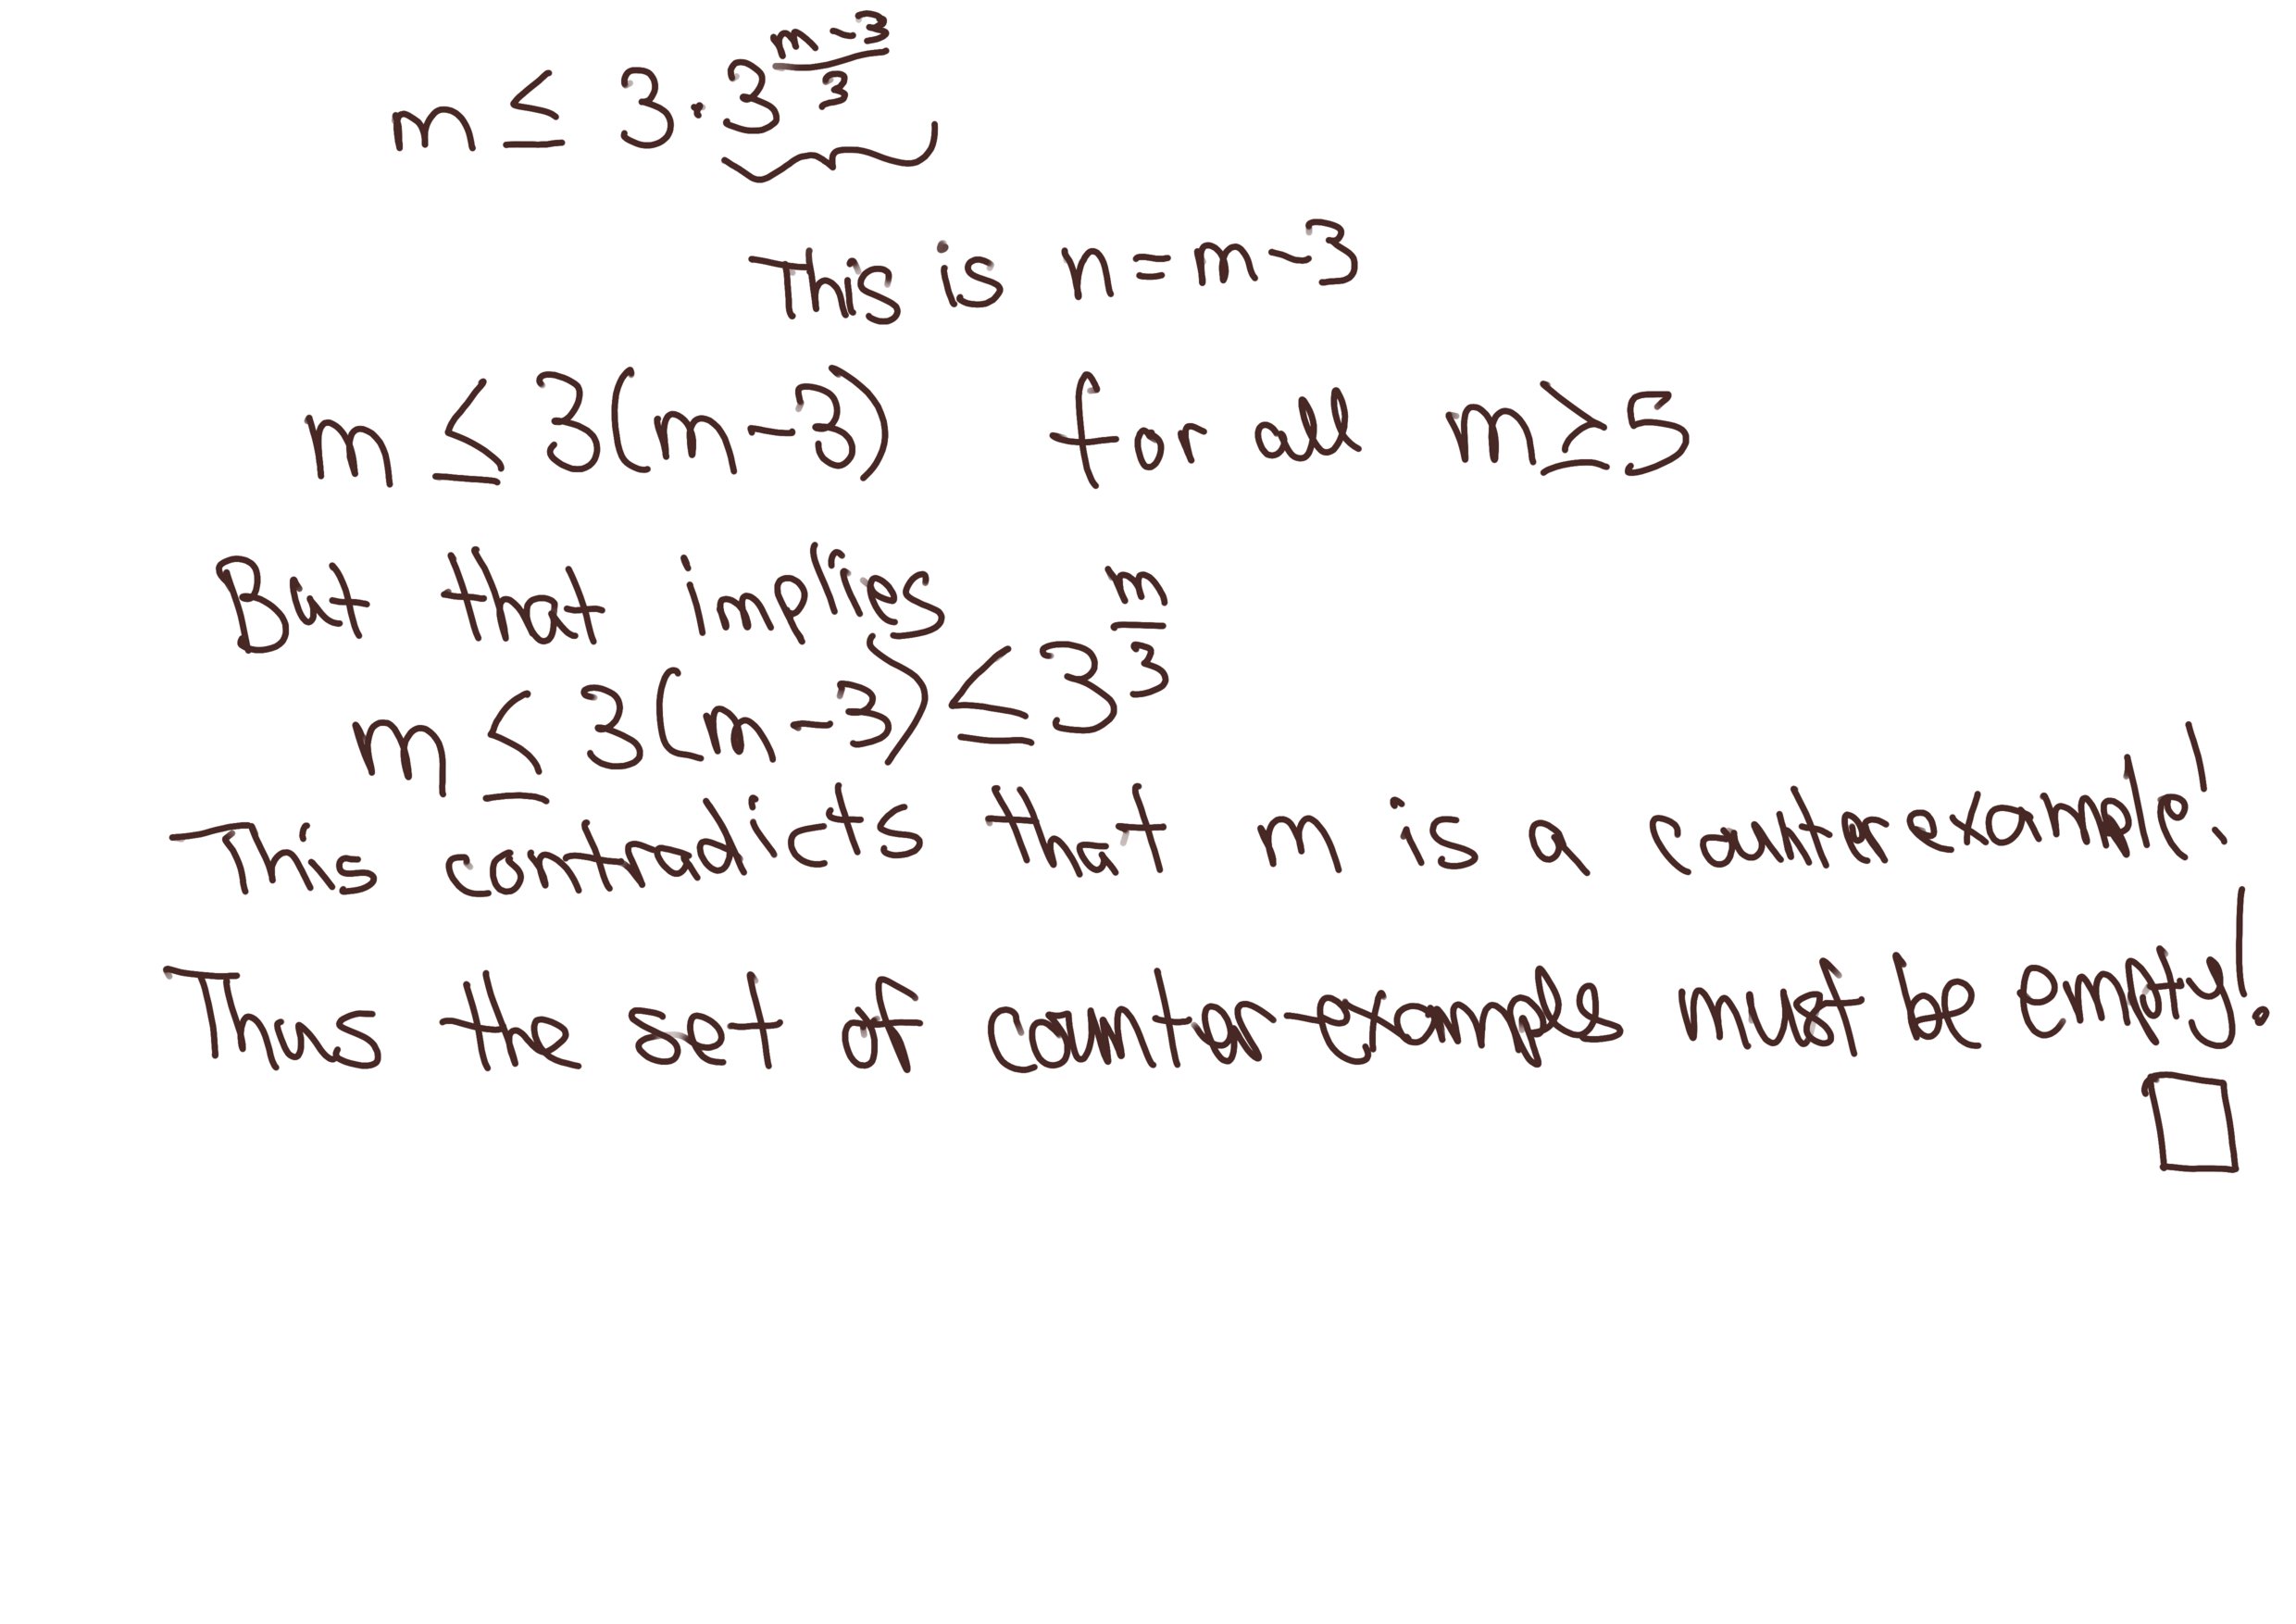 m ≤ 3·3^{\frac{m-3}{3}}
This is n=m-3
m ≤ 3(m-3) for all m≥5
But that implies
m ≤ 3(m-3) ≤ 3^{\frac{m}{3}}
This contradicts that m is a counterexample!
Thus the set of counter-examples must be empty!
□